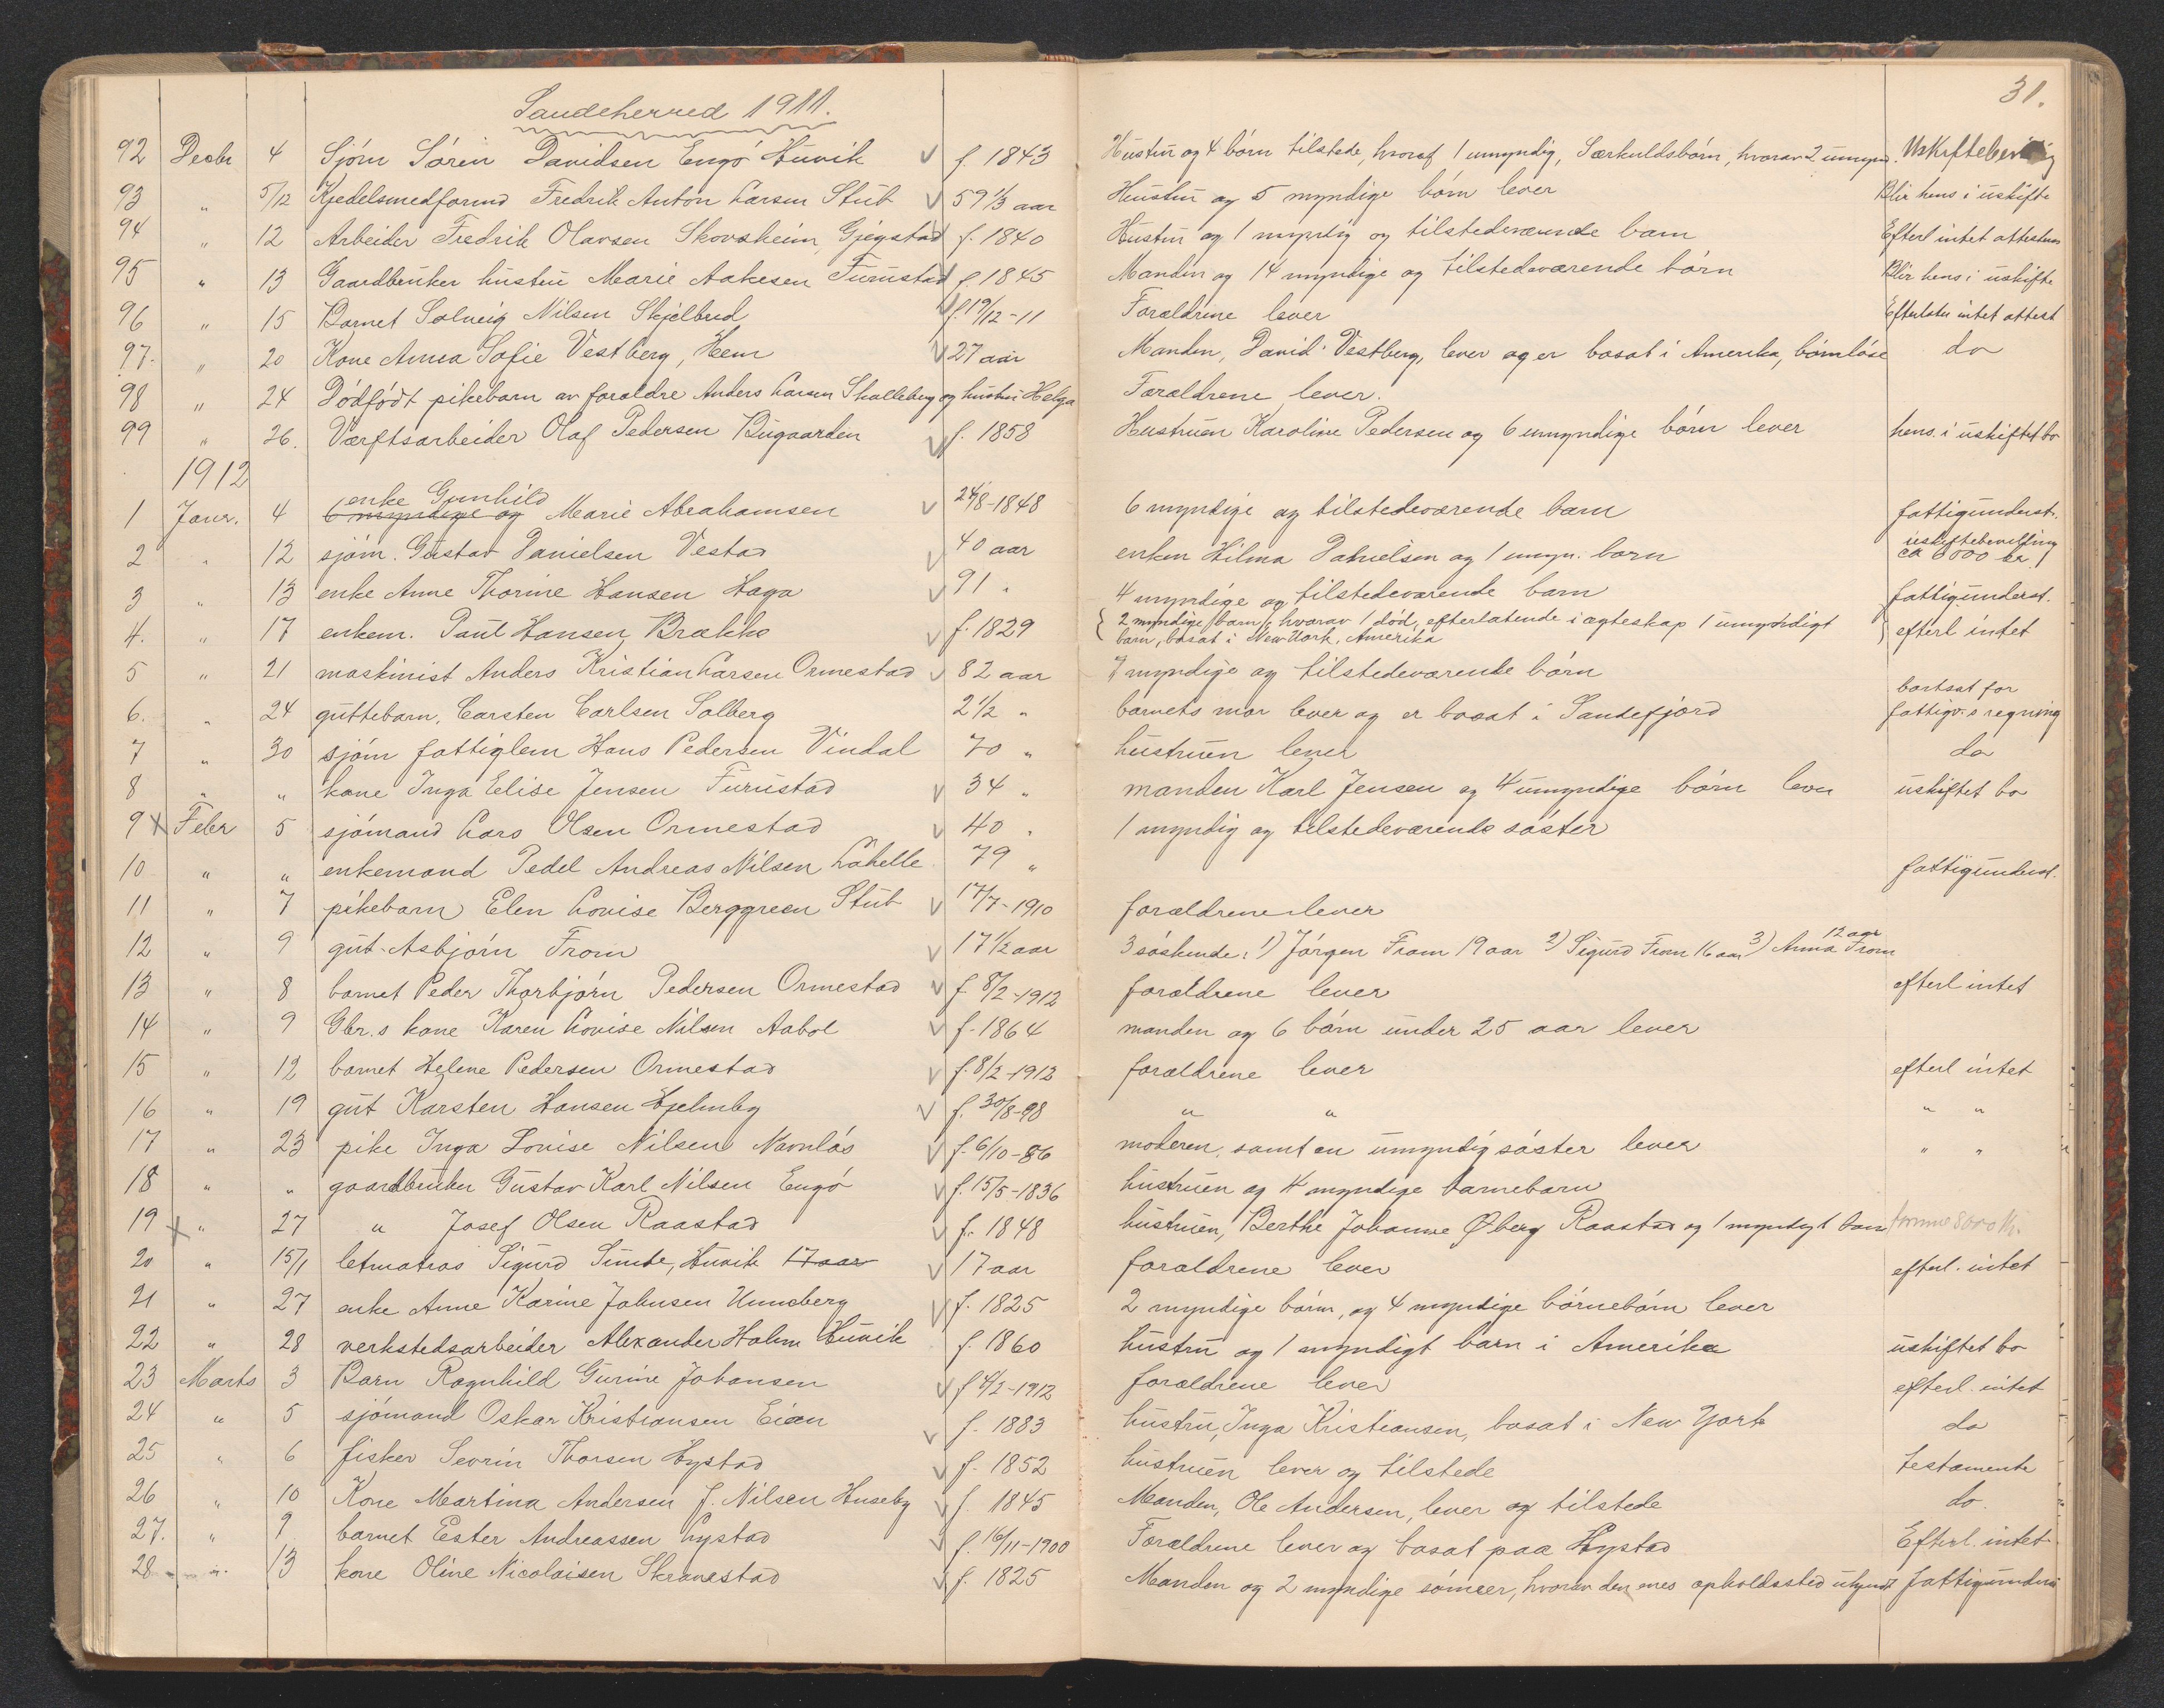 31.
Sandeherred 1911.
92 Decbr 4 Sjøm Søren Davidsen Engø Huvik v f 1843 Hustru og 4 børn tilstede, hvoraf 1 umyndig, Særkuldsbørn, hvorav 2 umynd. Uskiftebevilling
93 " 5/12 Kjedelsmedformd Fredrik Anton Larsen Stub v 59 1/3 aar Hustru og 5 myndige børn lever Blir hens i uskifte
94 " 12 Arbeider Fredrik Olavsen Skovsheim, Gjegstad f. 1840 Hustru og 1 myndig og tilstedeværende barn Efterl intet
95 " 13 Gaardbruker hustru Marie Aakesen Furustad v f. 1845 Manden og 14 myndige og tilstedeværende børn Blir hens i uskifte
96 " 15 Barnet Solveig Nilsen Skjelbred v f. 19/12-11 Forældrene lever Efterlater intet attest
97. " 20 Kone Anna Sofie Vestberg, Hem v 27 aar Manden, David Vestberg, lever og er bosat i Amerika, børnløse do
98 " 24 Dødfødt pikebarn av foraldre Anders Larsen Skolleberg og hustru Helga Forældrene lever.
99 " 26. Værftsarbeider Olaf Pedersen Bugaarden v f. 1858 Hustruen Karoline Pedersen og 6 umyndige børn lever hens. i uskiftet bo
1912
enke Gunhild
1 Janr. 4 6 myndige og Marie Abrahamsen v 24/8-1848 6 myndige og tilstedeværende barn fattigunderst.
2 " 12 sjøm. Gustav Danielsen Vestad v 40 aar enken Hilma Danielsen og 1 umyn. barn uskiftebevilling ca 6000 kr
3 " 13 enke Anne Thorine Hansen Haga v 91 " 4 myndige og tilstedeværende barn fattigunderst.
4. " 17 enkem. Paul Hansen Brække v f. 1829 2 myndige barn, hvorav 1 død, efterlatende i ægteskap 1 umyndigt
barn, bosat i New York, Amerika efterl intet
5 " 21 maskinist Anders Kristian Larsen Ormestad v 82 aar 7 myndige og tilstedeværende børn
6. " 24 guttebarn, Carsten Carlsen Solberg 2 1/2 " barnets mor lever og er bosat i Sandefjord bortsat for fattigv.s regning
7 " 30 sjøm fattiglem Hans Pedersen Vindal 70 " hustruen lever do
8 " " kone Inga Elise Jensen Furustad v 34 " manden Karl Jensen og 4 umyndige børn lever uskiftet bo
9 x Febr 5 sjømand Lars Olsen Ormestad v 40 " 1 myndig og tilstedeværende søster
10 " " enkemand Pedel Andreas Nilsen Lahelle 79 " fattigunderst.
11 " 7 pikebarn Elen Lovise Berggreen Stub v 17/7-1910 forældrene lever
12 " 9 gut Asbjørn From v 17 1/2 aar 3 søskende: 1) Jørgen From 19 aar 2) Sigurd From 16 aar 3) Anna From 12 aar
13 " 8 barnet Peder Thorbjørn Pedersen Ormestad v f. 8/2-1912 forældrene lever efterl intet
14 " 9 Gbr.s kone Karen Lovise Nilsen Aabol v f. 1864 manden og 6 børn under 25 aar lever
15 " 12 barnet Helene Pedersen Ormestad v f. 8/2-1912 forældrene lever efterl intet
16 " 19 gut Karsten Hansen Hjelmby v f. 30/8-98 " " " "
17 " 23 pike Inga Lovise Nilsen Navnløs v f. 6/10-86 moderen, samt en umyndig søster lever " "
18 " " gaardbruker Gustav Karl Nilsen Engø v f. 15/5-1836 hustruen og 4 myndige barnebarn
19 x " 27 " Josef Olsen Raastad v f. 1848 hustruen, Berthe Johanne Øberg Raastad og 1 myndigt barn 8000 kr.
20 " 15/1 letmatros Sigurd Sunde, Huvik 17 aar v 17 aar forældrene lever efterl. intet
21 " 27 enke Anne Karine Johnsen Unneberg v f. 1825 2 myndige børn, og 4 myndige børnebørn lever
22 " 28 verkstedsarbeider Alexander Holm Huvik f. 1860 hustru og 1 myndigt barn i Amerika uskiftet bo
23 Marts 3 Barn Ragnhild Gurine Johansen v f 4/2-1912 forældrene lever efterl. intet
24 " 5 sjømand Oskar Kristiansen Eian v f. 1883 hustru, Inga Kristiansen, bosat i New York do
25 " 6 fisker Sevrin Thorsen Hystad v f. 1852 hustruen lever og tilstede testamente
26 " 10 Kone Martina Andersen f. Nilsen Huseby v f. 1845 Manden, Ole Andersen, lever og tilstede do.
27. " 9 barnet Ester Andreassen Lystad v f. 16/11-1900 Forældrene lever og bosat paa Hystad Efterl. intet
28 " 13 kone Oline Nicolaisen Skranestad v f. 1825 Manden og 2 myndige sønner, hvorav den enes opholdssted ukjendt fattigunderst